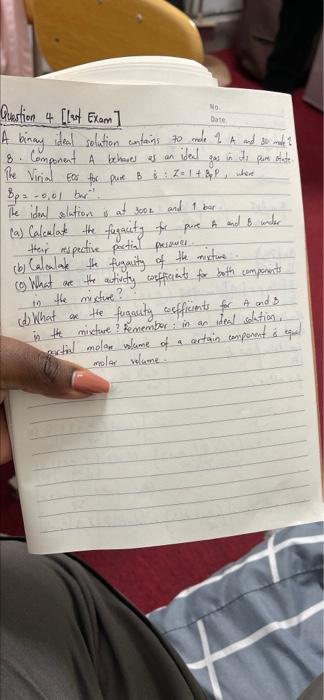 No.
Question 4 [last Exam] Date
A binary ideal solution contains 70 mole % A and 30 mole %
B. Component A behaves as an ideal gas in its pure state.
The Virial EOS for pure B is : Z = 1 + BpP, where
Bp = -0,01 bar⁻¹.
The ideal solution is at 300K and 1 bar.
(a) Calculate the fugacity for pure A and B under
their respective partial pressures.
(b) Calculate the fugacity of the mixture.
(c) What are the activity coefficients for both components
in the mixture?
(d) What are the fugacity coefficients for A and B
in the mixture? Remember: in an ideal solution,
partial molar volume of a certain component is equal
molar volume.